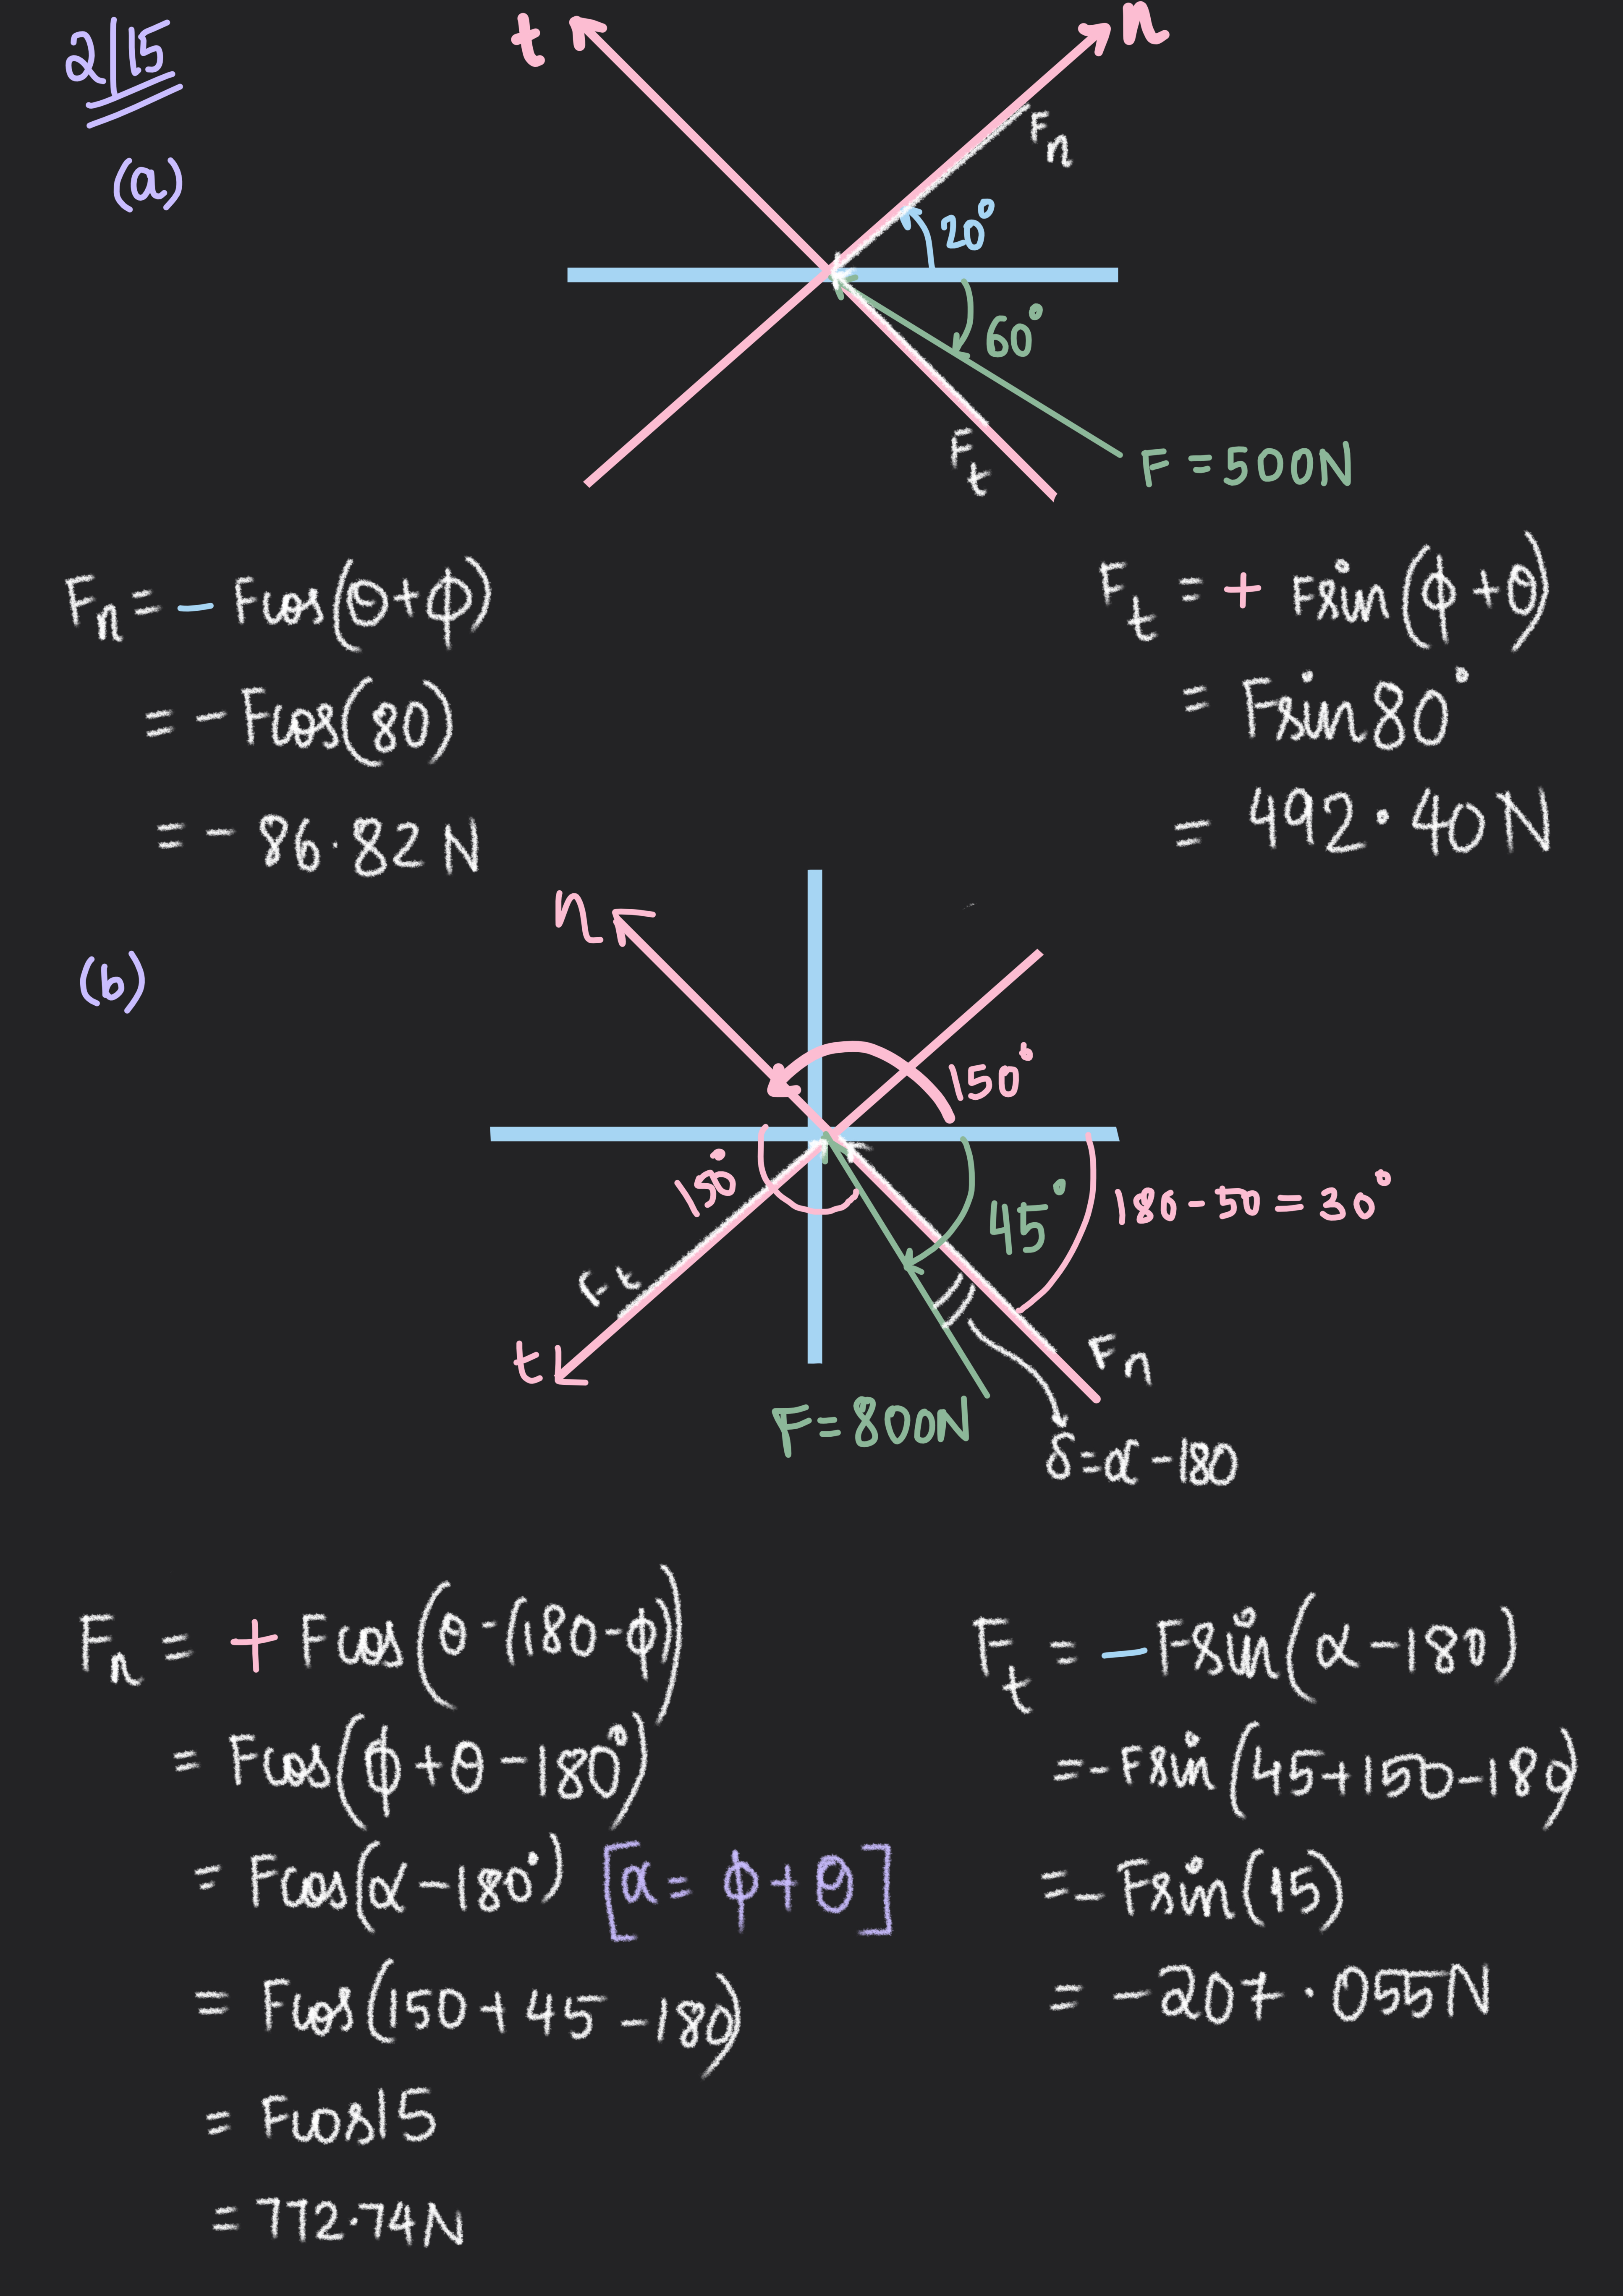 2/15
(a)
t
n
Fn
20°
60°
Ft
F = 500N
Fn = - Fcos(θ+ϕ)
= - Fcos(80)
= - 86.82 N
Ft = + Fsin(ϕ+θ)
= Fsin80°
= 492.40 N
(b)
n
150°
150°
45°
180-50 = 30°
Ft
t
Fn
F=800N
δ=α-180
Fn = + Fcos(θ-(180-ϕ))
= Fcos(ϕ+θ-180°)
= Fcos(α-180°) [α = ϕ+θ]
= Fcos(150+45-180)
= Fcos15
= 772.74N
Ft = - Fsin(α-180)
= - Fsin(45+150-180)
= - Fsin(15)
= - 207.055N